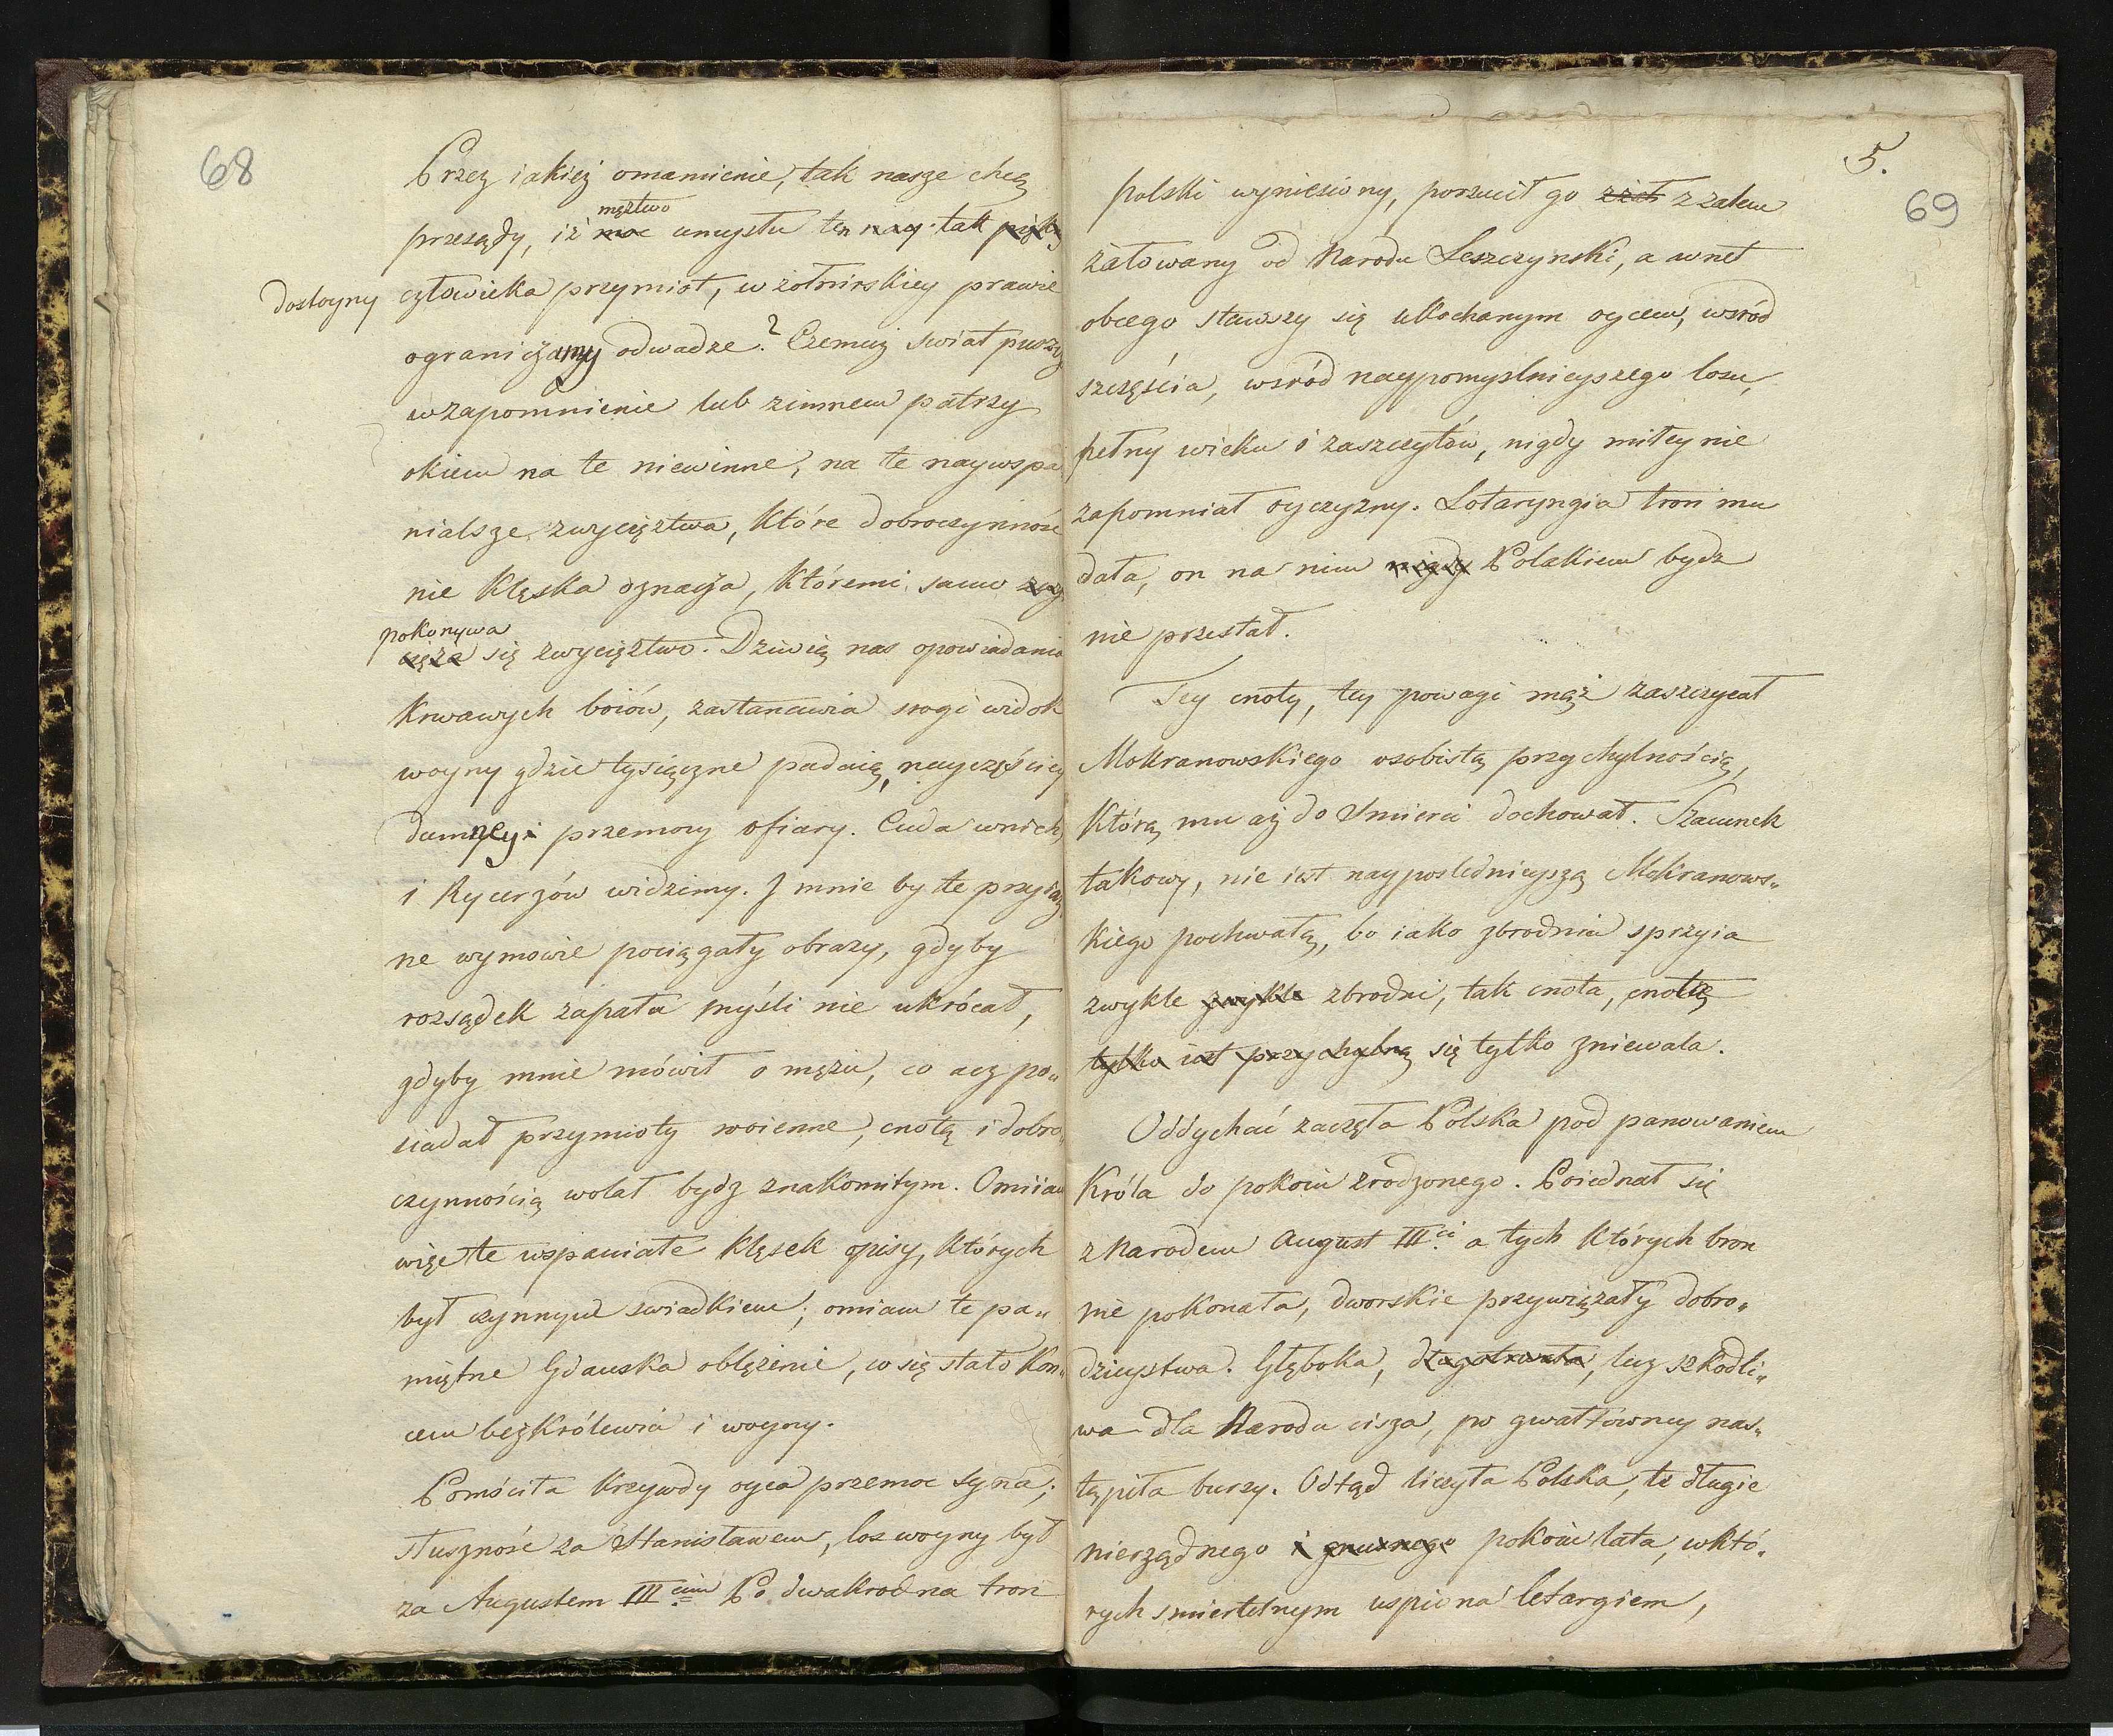 68
Przez iakież omamienie, tak nasze chcą
męztwo
przesądy, iż moc umysłu ten nay tak piękny
dostoyny
człowieka przymiot, w żołnirskiey prawie
ograniczamy odwadze? Czemuż swiat puszcza
w zapomnienie lub zimnem patrzy
okiem na te niewinne, na te naywspa
nialsze zwycięztwa, które dobroczynność
nie klęska oznacza, któremi samo zwy
pokonywa
cięża się zwycięztwo. Dziwią nas opowiadania
krwawych boiów, zastanawia srogi widok
woyny gdzie tysiączne padaią, nayczęściey
dumney i przemocy ofiary. Cuda w nich,
i Rycerzów widzimy. J mnie by te przyiaz
ne wymowie pociągały obrazy, gdyby
rozsądek zapału myśli nie ukrócał,
gdyby mnie mówił o mężu, co acz po„
siadał przymioty woienne, cnotą i dobro„
czynnością wolał bydz znakomitym. Omiiam
więc te wspaniałe klęsek opisy, których
był czynnym swiadkiem; omiam te pa„
miętne Gdanska oblężenie, co się stało kon„
cem bezkrólewia i woyny.
Pomściła krzywdy oyca przemoc syna;
słuszność za Stanisławem, los woyny był
za Augustem III.cim Po dwakroć na tron
5.
69
polski wyniesiony, porzucił go zżał z żalem
żałowany od Narodu Leszczynski, a wnet
obcego stawszy się ukochanym oycem, wsród
szczęścia, wsród naypomyslnieyszego losu,
pełny wieku i zaszczytów, nigdy miłey nie
zapomniał oyczyzny. Lotaryngia tron mu
dała, on na nim nigdy Polakiem bydz
nie przestał.
Tey cnoty, tey powagi mąż zaszczycał
Mokranowskiego osobistą przychylnością,
którą mu aż do Smierci dochował. Szacunek
takowy, nie iest nayposlednieyszą Mokranows„
kiego pochwałą, bo iako zbrodnia sprzyia
zwykle zwykle zbrodni, tak cnota, cnotą
tylko iest przychylną się tylko zniewala.
Oddychać zaczęła Polska pod panowaniem
Króla do pokoiu zrodzonego. Poiednał się
z Narodem August III.ci a tych których bron
nie pokonała, dworskie przywiązały dobro„
dzieystwa. Głęboka, długotrwała, lecz szkodli„
wa dla Narodu cisza, po gwałtowney nas„
tąpiła burzy. Odtąd liczyła Polska, te długie
nierządnego i gnusnego pokoiu lata, w któ„
rych smiertelnym uspiona letargiem,